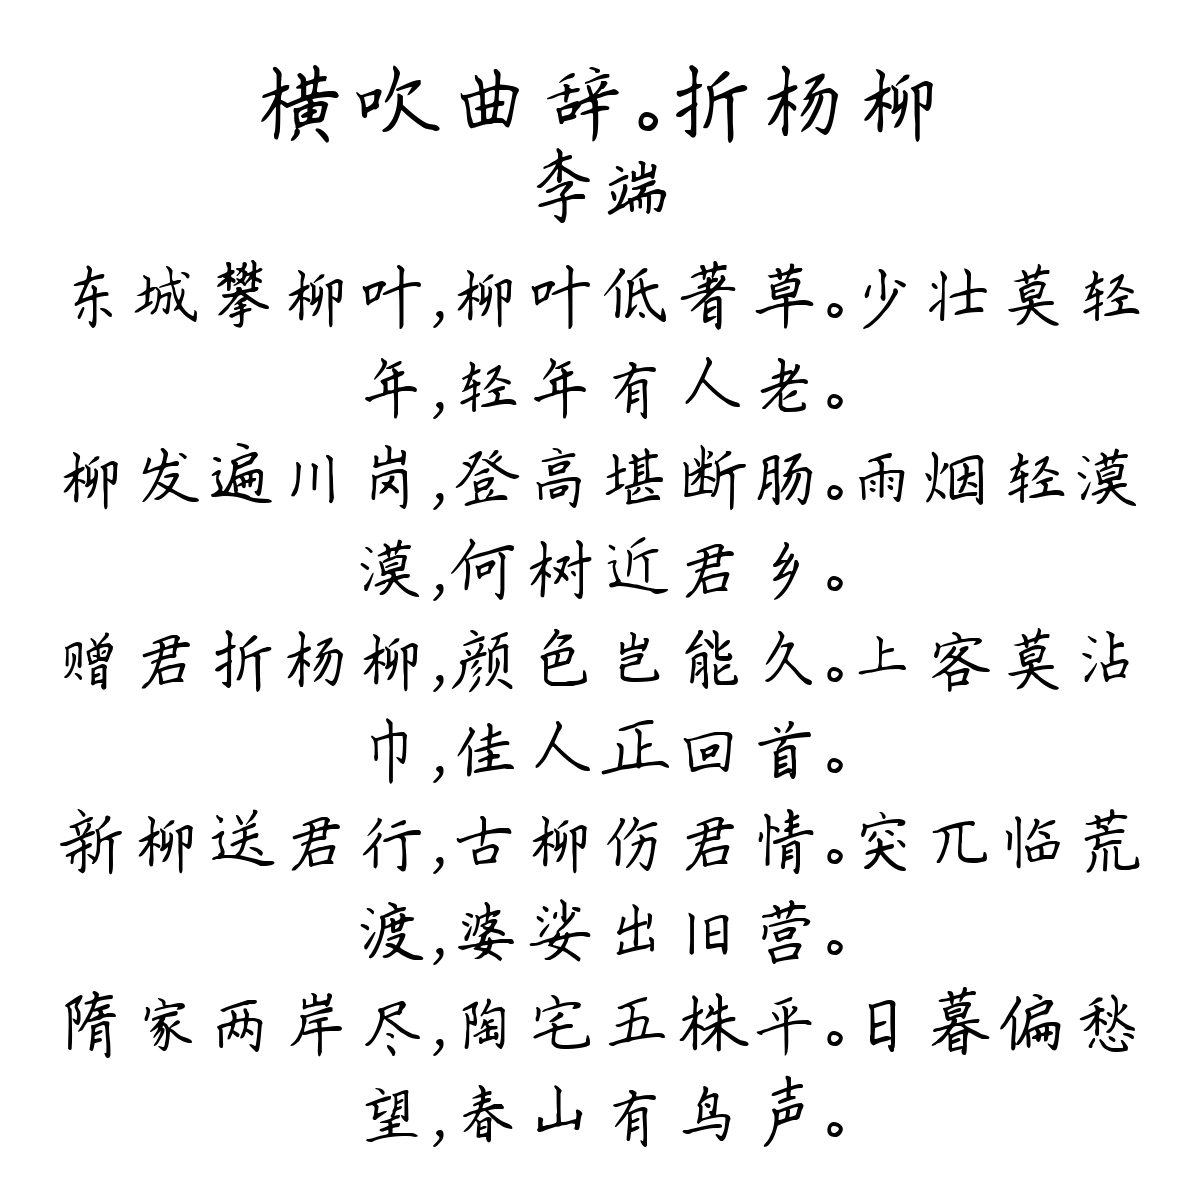 横吹曲辞。折杨柳
李端
东城攀柳叶,柳叶低著草。少壮莫轻
年,轻年有人老。
柳发遍川岗,登高堪断肠。雨烟轻漠
漠,何树近君乡。
赠君折杨柳,颜色岂能久。上客莫沾
巾,佳人正回首。
新柳送君行,古柳伤君情。突兀临荒
渡,婆娑出旧营。
隋家两岸尽,陶宅五株平。日暮偏愁
望,春山有鸟声。